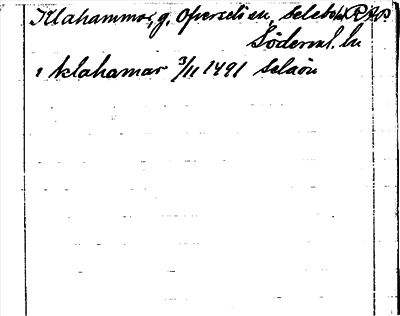 Klahammar, g. Överselö sn, Selebo hd RAP
Söderml. ln
i klahamar 3/11 1491 Selaön